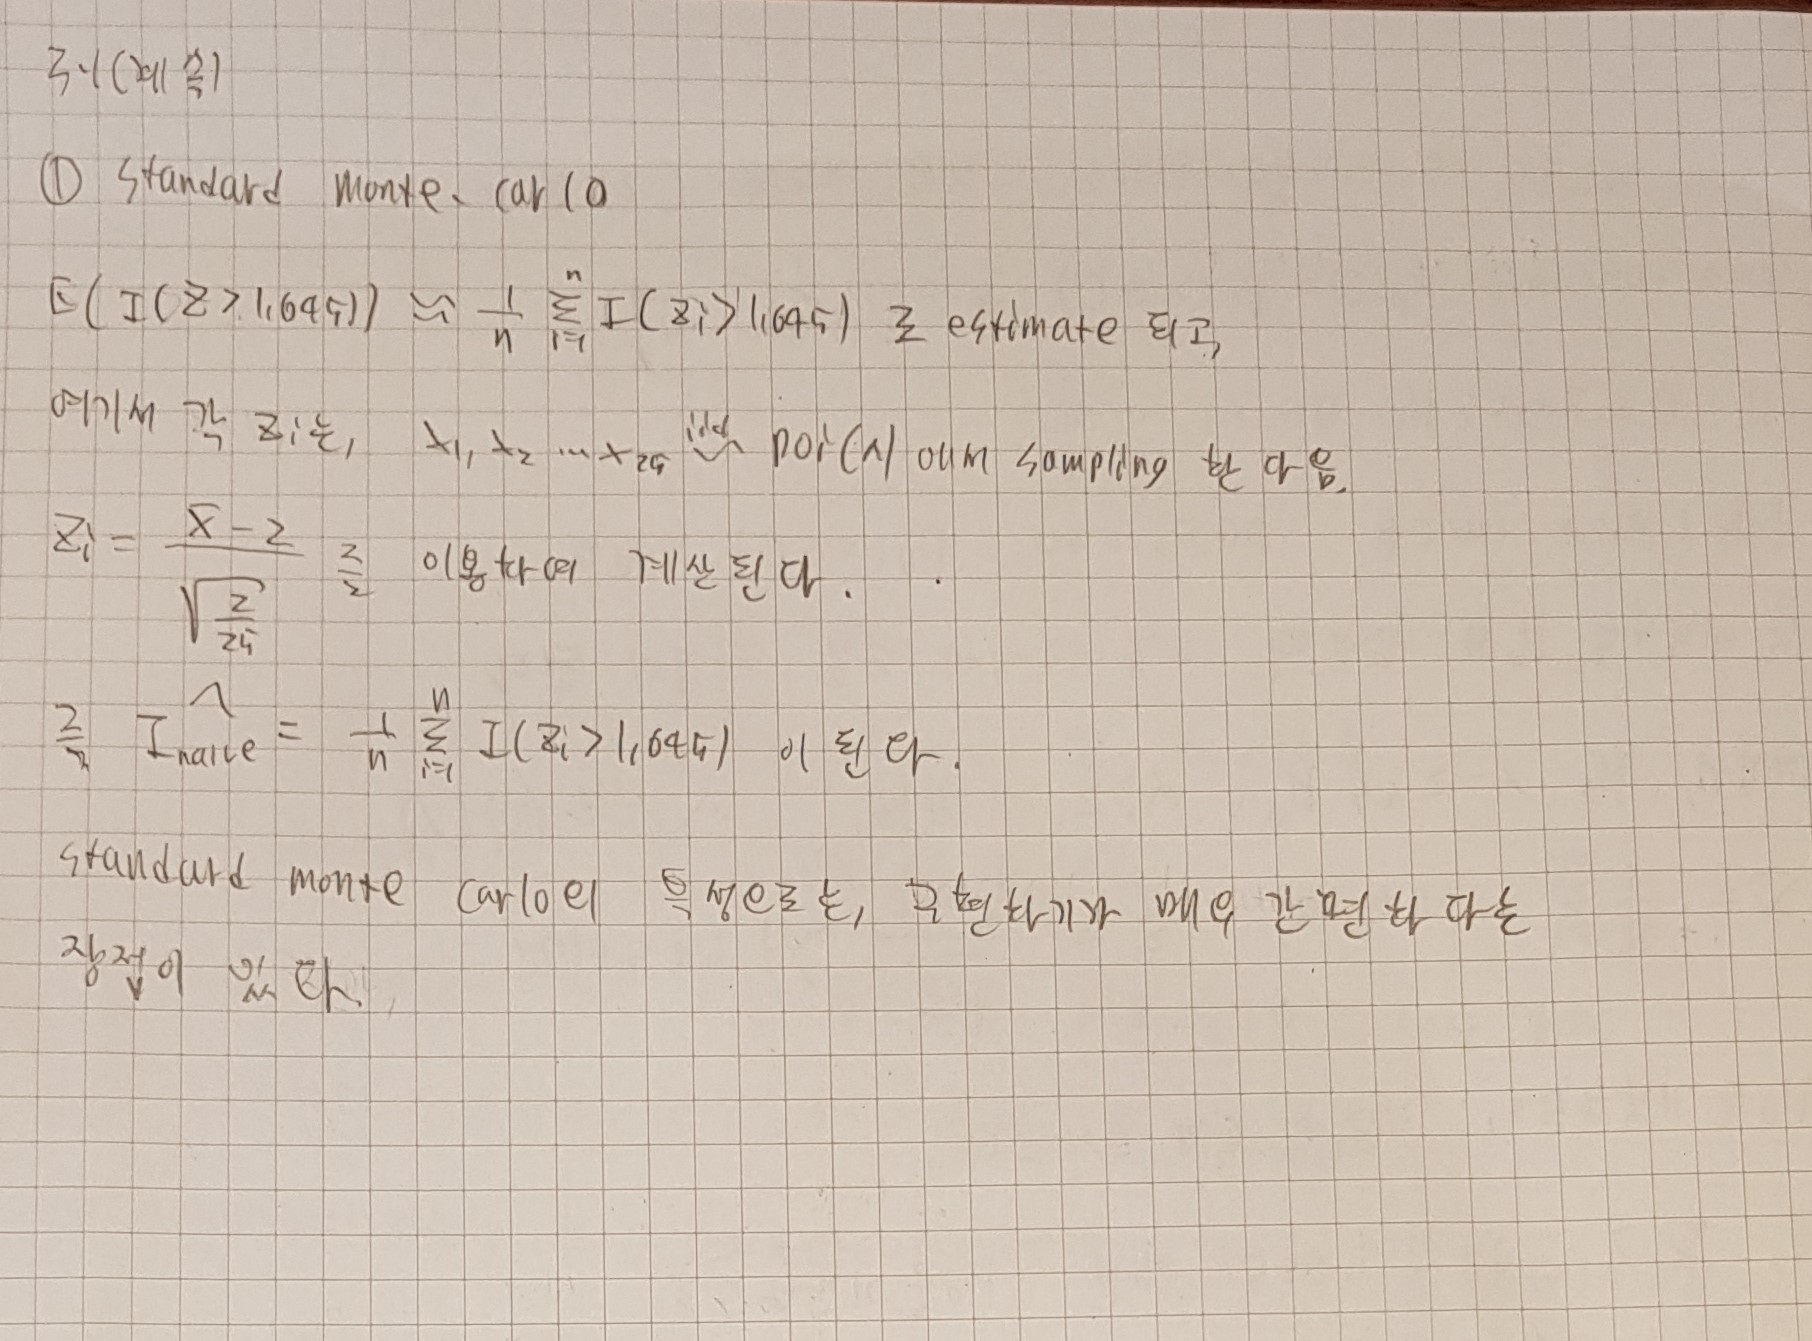 (계속)
① standard monte carlo
E(I(Z>1.645)) ≈ 1/n Σ_{i=1}^{n} I(Zi>1.645) 로 estimate 되고,
여기서 각 Zi는, X1, X2 ... X25 ~iid poi(λ) 에서 sampling 한 다음,
Zi = (X̄-2)/√(2/25) 를 이용하여 계산된다.
즉 Î_naive = 1/n Σ_{i=1}^{n} I(Zi>1.645) 이 된다.
standard monte carlo의 특성으로는, 구현하기가 매우 간편하다는
장점이 있다.